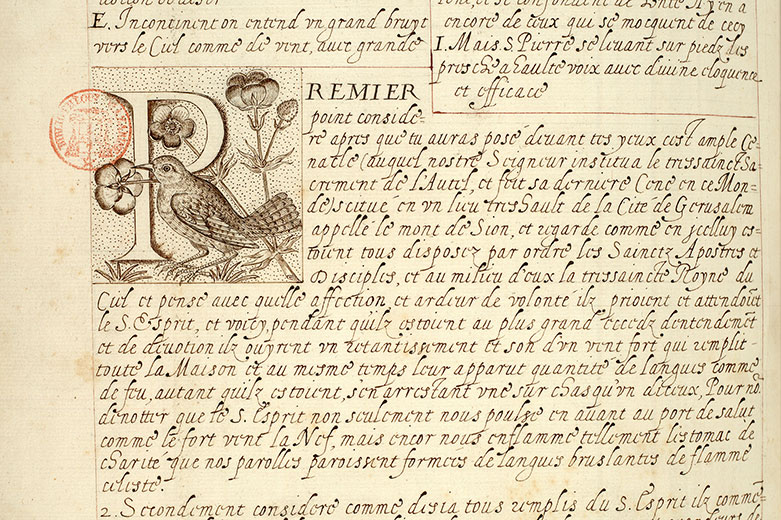 E. Incontinent on entend vn grand bruyt
vers le Ciel comme de vent, auec grande
encore de ceux que se mocquent de cecy
I. Mais S. Pierre se leuant sur piedz les
presche a haulte voix auec diuine eloquence
et efficace
PREMIER
point conside-
re apres que tu auras posé deuant tes yeux cest ample Ce-
nacle (auquel nostre Seigneur institua le tressainct Sa-
crement de l'Autel, et feit sa derniere Cene en ce Mon-
de) scitué en vn lieu tres hault de la Cité de Gerusalem
appellé le mont de Sion, et regarde comme en jcelluy es-
toient tous disposez par ordre les Sainctz Apostres et
Disciples, et au milieu d'eux la tressaincte Royne du
Ciel et pense auec quelle affection, et ardeur de volonte ilz prioient et attendoiēt
le S. Esprit, et voicy, pendant quilz estoient au plus grand excedz dentendemēt
et de deuotion ilz ouyrent vn retantissement et son d'vn vent fort qui remplit
toute la Maison et au mesme temps leur apparut quantité de langues comme
de feu, autant quilz estoient, s'en arrestant vne sur chasqu'vn diceux, Pour no.
denotter que le S. Esprit non seulement nous poulse en auant au port de salut
comme le fort vent la Nef, mais encor nous enflamme tellement lestomac de
charité que nos parolles paroissent formees de langues bruslantes de flamme
celeste.
2. Secondement considere comme desia tous remplis du S. Esprit ilz commē-